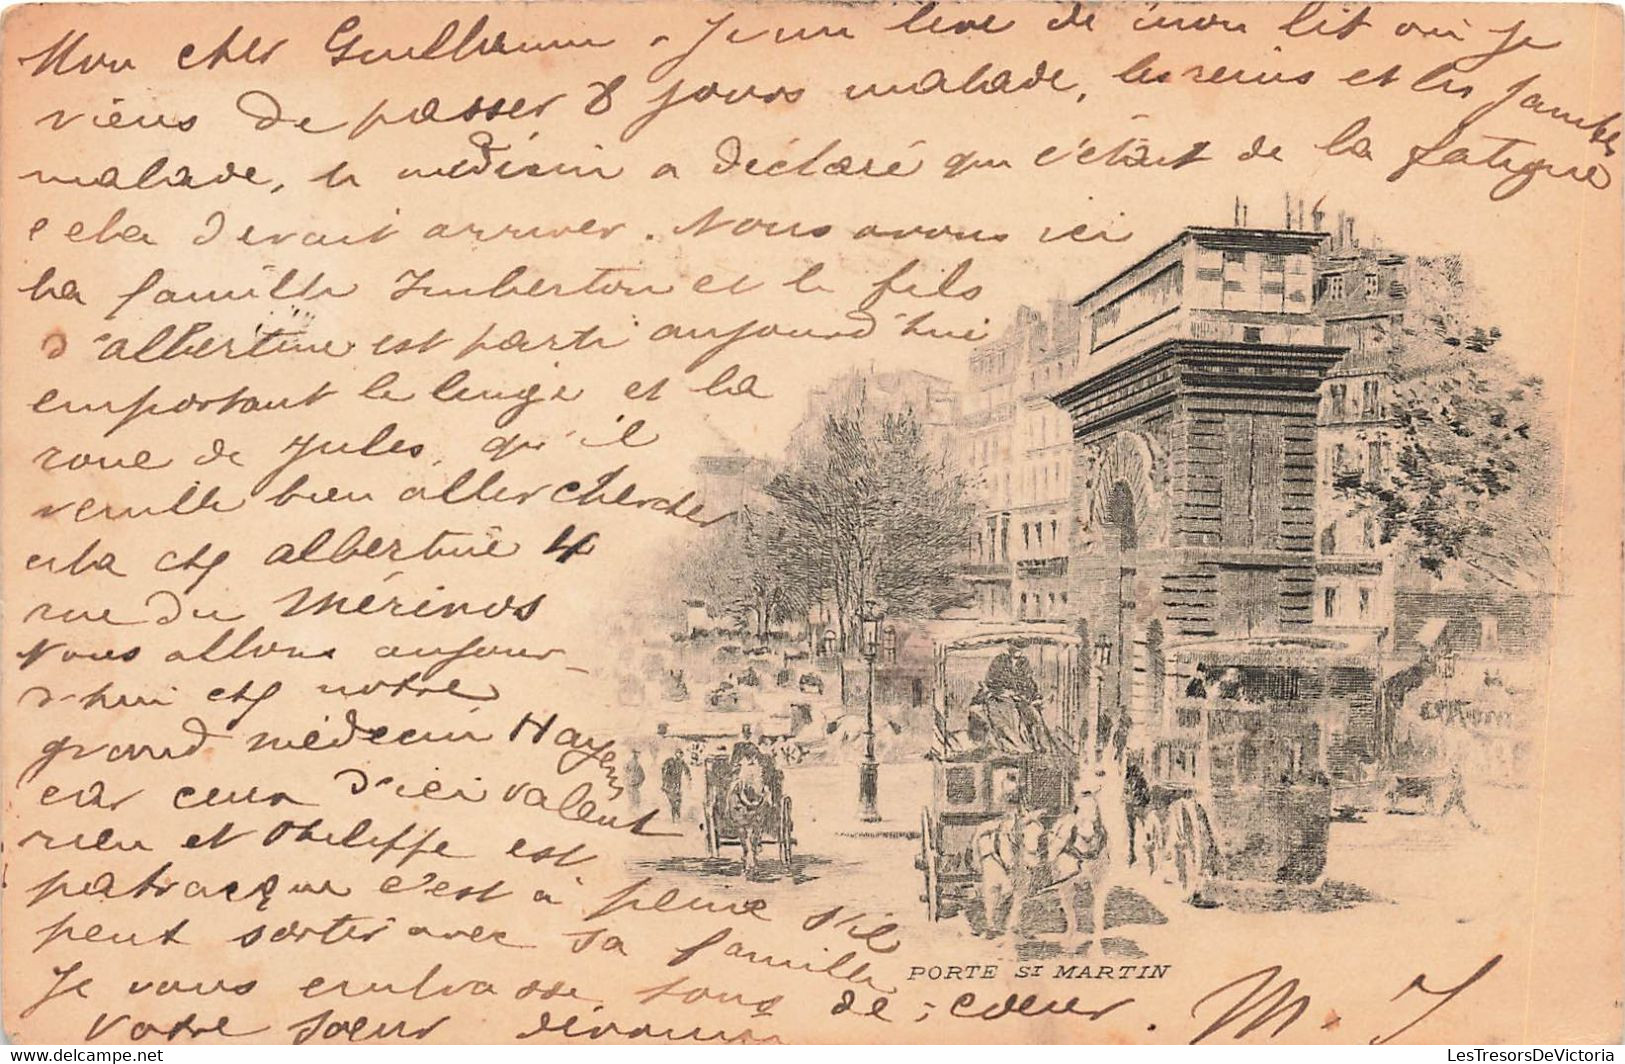 Mon cher Guillaume - Je me lève de mon lit où je
viens de passer 8 jours malade, les reins et les jambes
malade, le médecin a déclaré que c'était de la fatigue
cela devait arriver. Nous avons ici
la famille Imberton et le fils
d'albertine est parti aujourd'hui
emportant le linge et la
roue de Jules, qu'il
veuille bien aller chercher
cela chez albertine 4
rue du Mérinos
Nous allons aujour-
d'hui chez notre
grand médecin Hayem
car ceux d'ici valent
rien et Philippe est
patracque c'est à peine s'il
peut sortir avec sa famille
PORTE ST MARTIN
Je vous embrasse tous de cœur.
Votre sœur dévouée
M. J
LesTresorsDeVictoria